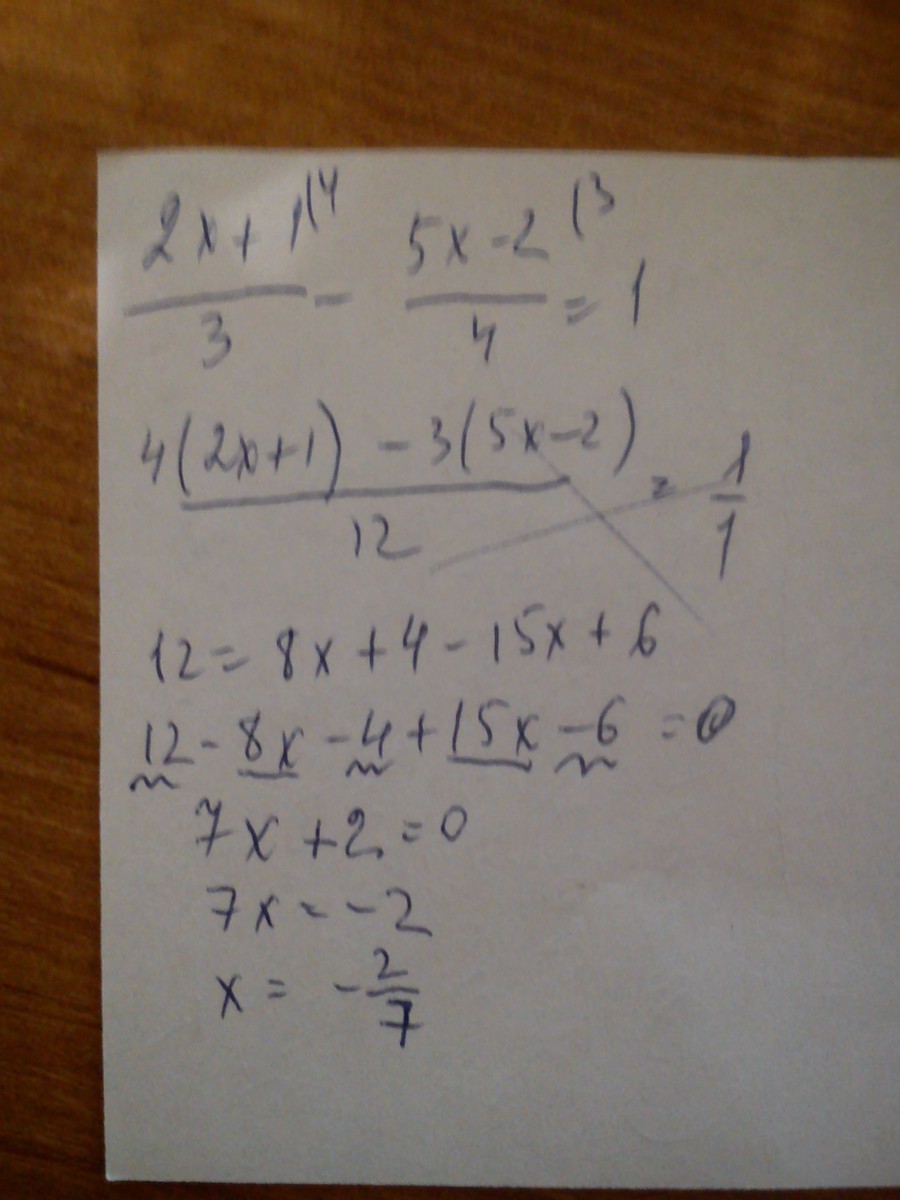 2x+1 (4 5x-2 (3
— - — = 1
3 4
4(2x+1) - 3(5x-2) 1
— = —
12 1
12 = 8x + 4 - 15x + 6
12 - 8x - 4 + 15x - 6 = 0
7x + 2 = 0
7x = -2
x = - 2/7